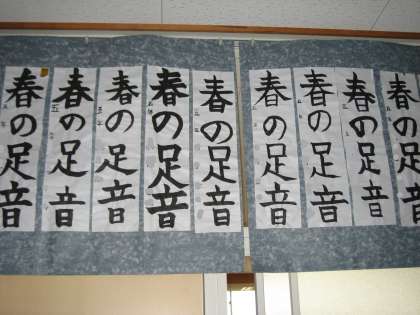 春の足音
春の足音
春の足音
春の足音
春の足音
春の足音
春の足音
春の足音
春の足音